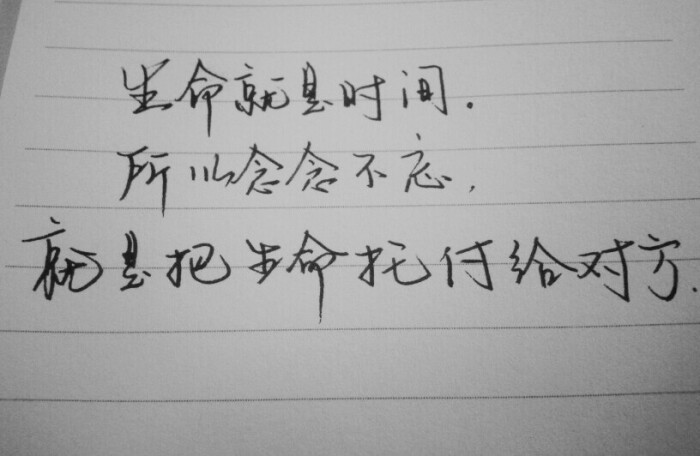 生命就是时间.
所以念念不忘,
就是把生命托付给对方.